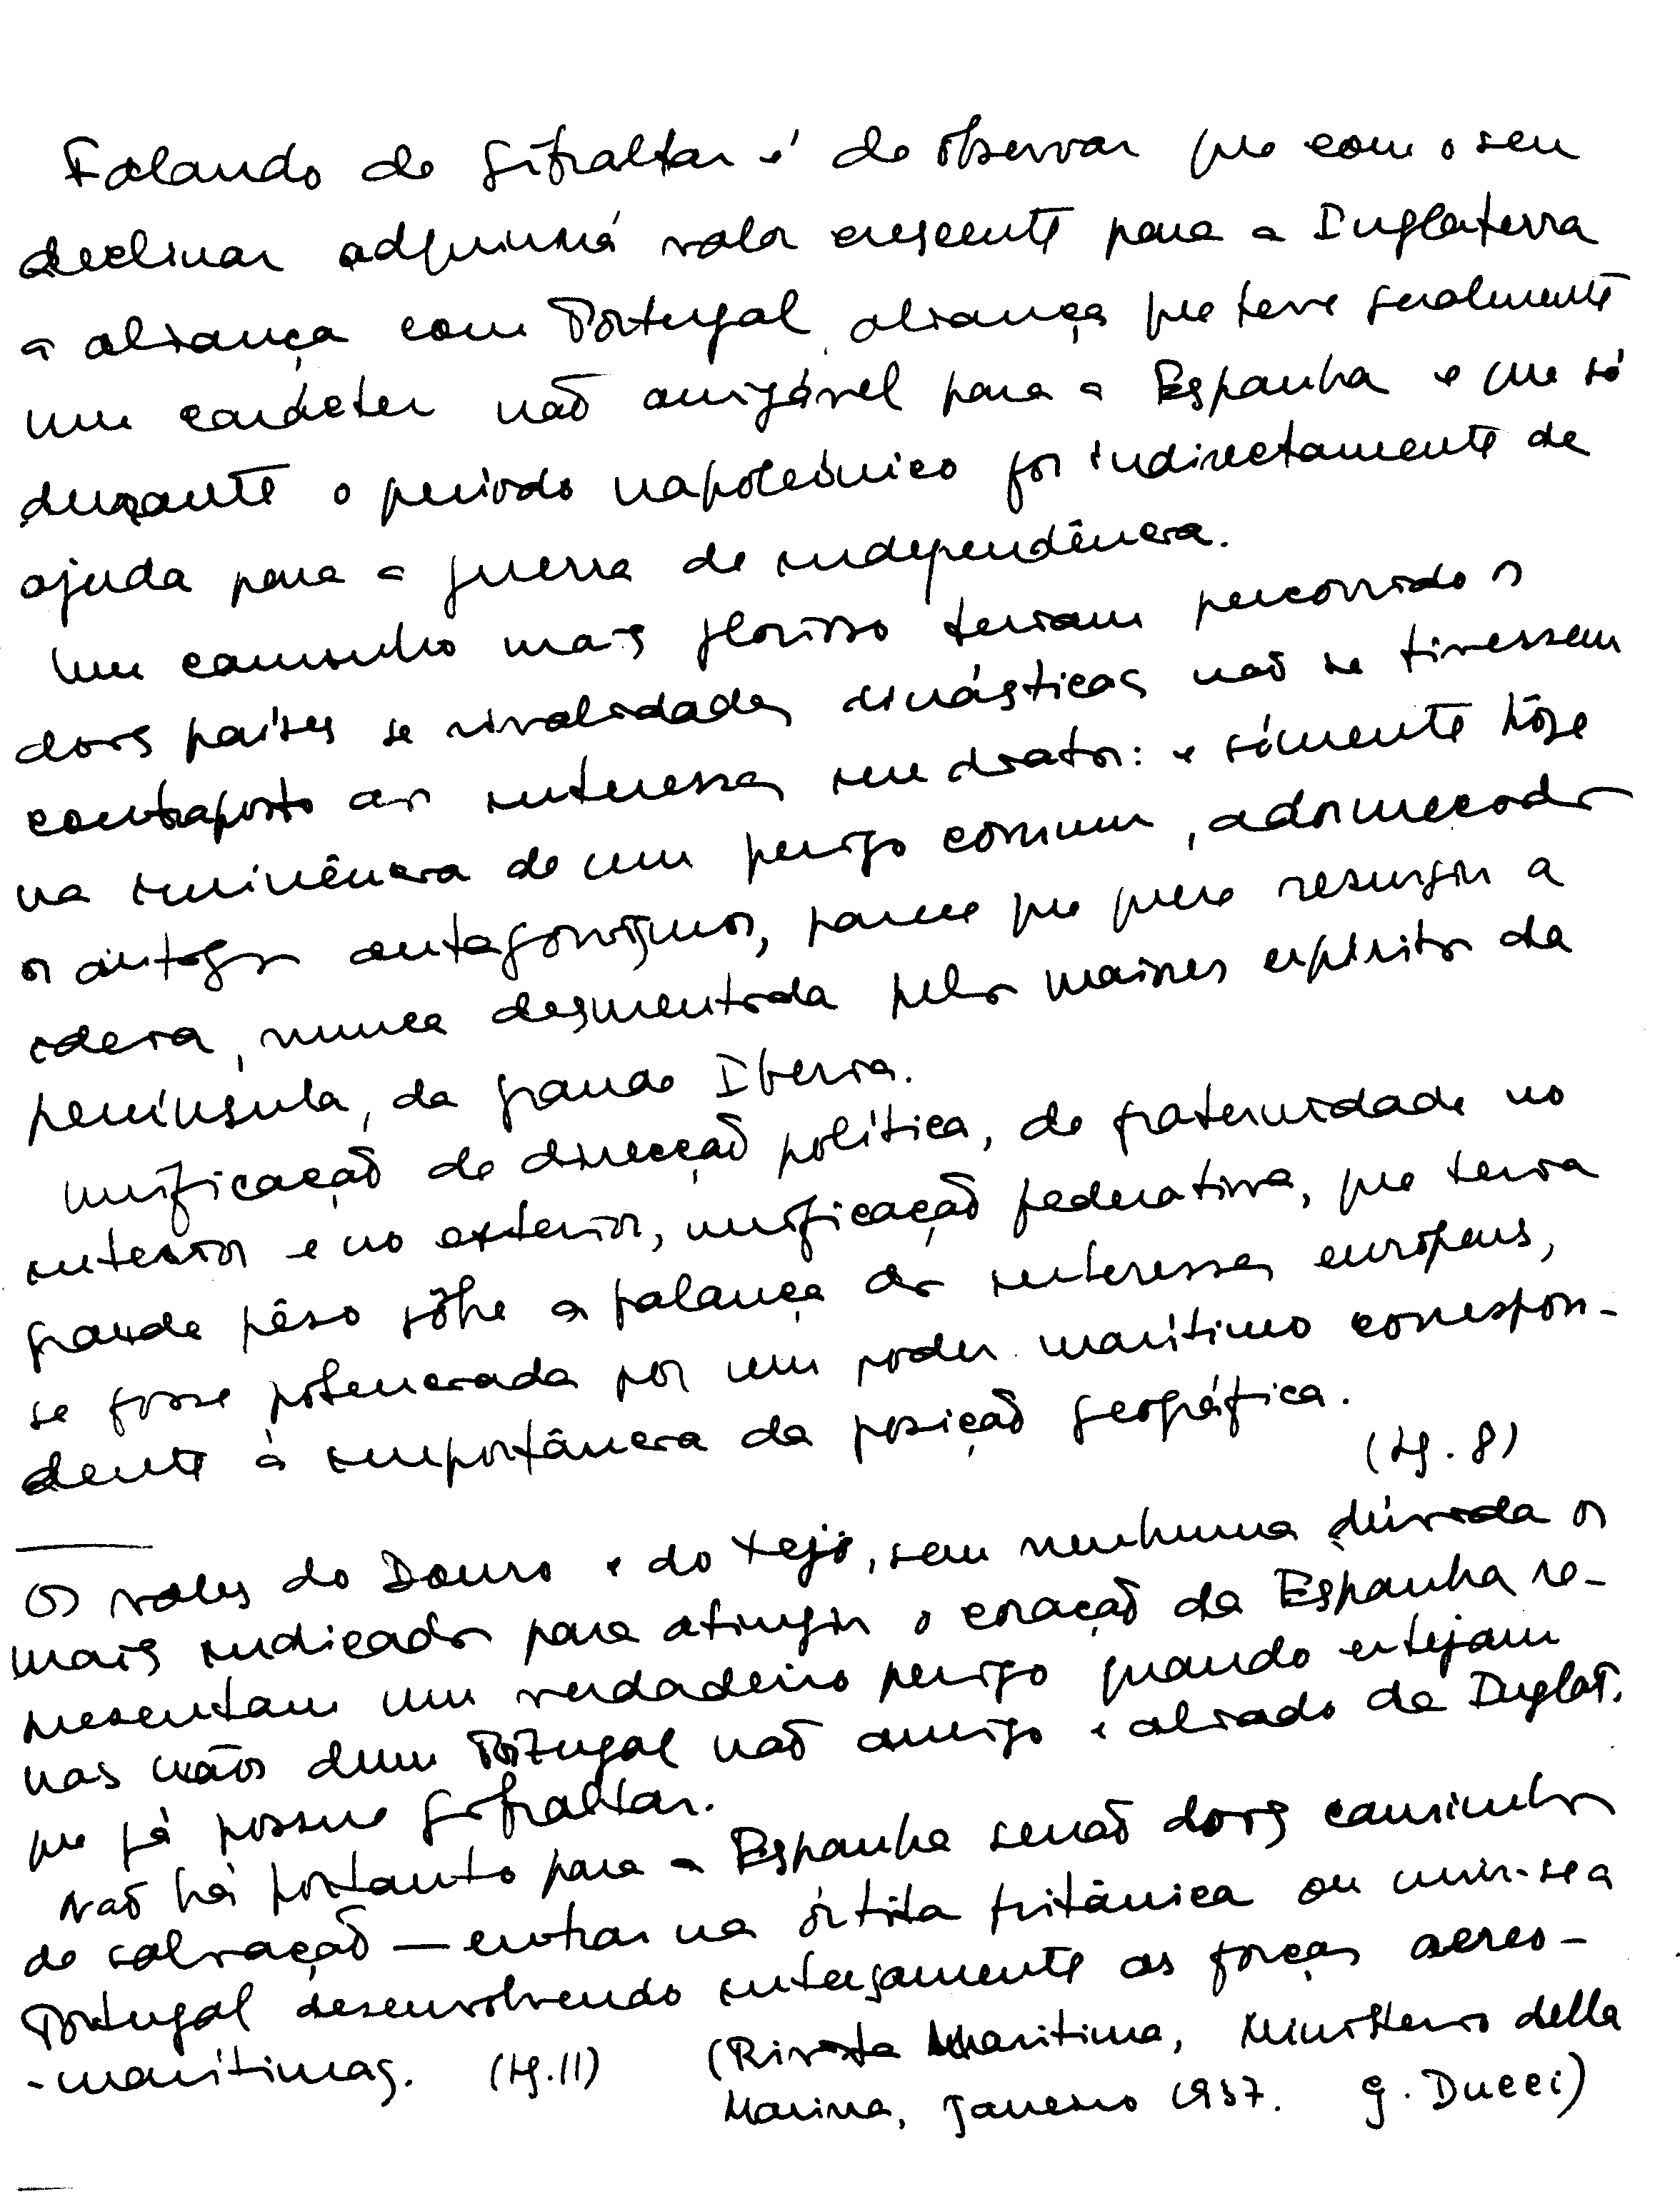 Falando de Gibraltar é de observar que com o seu
declinar adquirirá valor crescente para a Inglaterra
a aliança com Portugal, aliança que teve geralmente
um carácter não amigável para a Espanha e que só
durante o período napoleónico foi indirectamente de
ajuda para a guerra de independência.
Um caminho mais glorioso teriam percorrido os
dois países se rivalidades dinásticas não se tivessem
contraposto aos interesses imediatos: e sómente hôje
na iminência de um perigo comum, adormecidos
os antigos antagonismos, parece que quere resurgir a
ideia, nunca desmentida pelos maiores espíritos da
península, da grande Iberia.
Unificação de direcção política, de fraternidade no
interior e no exterior, unificação federativa, que teria
grande pêso sôbre a balança dos interesses europeus,
se fosse potenciada por um poder marítimo correspon-
dente à importância da posição geográfica.
(Pg. 8)
Os vales do Douro e do Tejo, sem nenhuma dúvida os
mais indicados para atingir o coração da Espanha re-
presentam um verdadeiro perigo quando estejam
nas mãos dum Portugal não amigo e aliado da Inglat.
que já possue Gibraltar.
Não há portanto para a Espanha senão dois caminhos
de salvação — entrar na órbita britânica ou unir-se a
Portugal desenvolvendo intensamente as forças aereo-
-marítimas. (Pg. 11) (Rivista Maritima, Ministerio della
Marina, Janeiro 1937. G. Ducci)